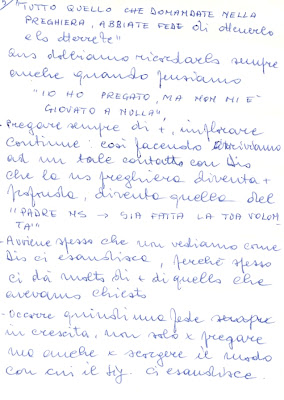 "TUTTO QUELLO CHE DOMANDATE NELLA
PREGHIERA, ABBIATE FEDE di ottenerlo
e lo otterrete"
dobbiamo ricordarlo sempre
anche quando pensiamo
"IO HO PREGATO, MA NON MI È
GIOVATO A NULLA".
- Pregare sempre di +, implorare
continue: così facendo arriviamo
ad un tale contatto con Dio
che la ns preghiera diventa +
profonda, diventa quella del
"PADRE NS → SIA FATTA LA TUA VOLON
TÀ"
- Avviene spesso che non vediamo come
Dio ci esaudisca, perché spesso
ci dà molto di + di quello che
avevamo chiesto
- occorre quindi una fede sempre
in crescita, non solo x pregare
ma anche x scorgere il modo
con cui il Sig. ci esaudisce.